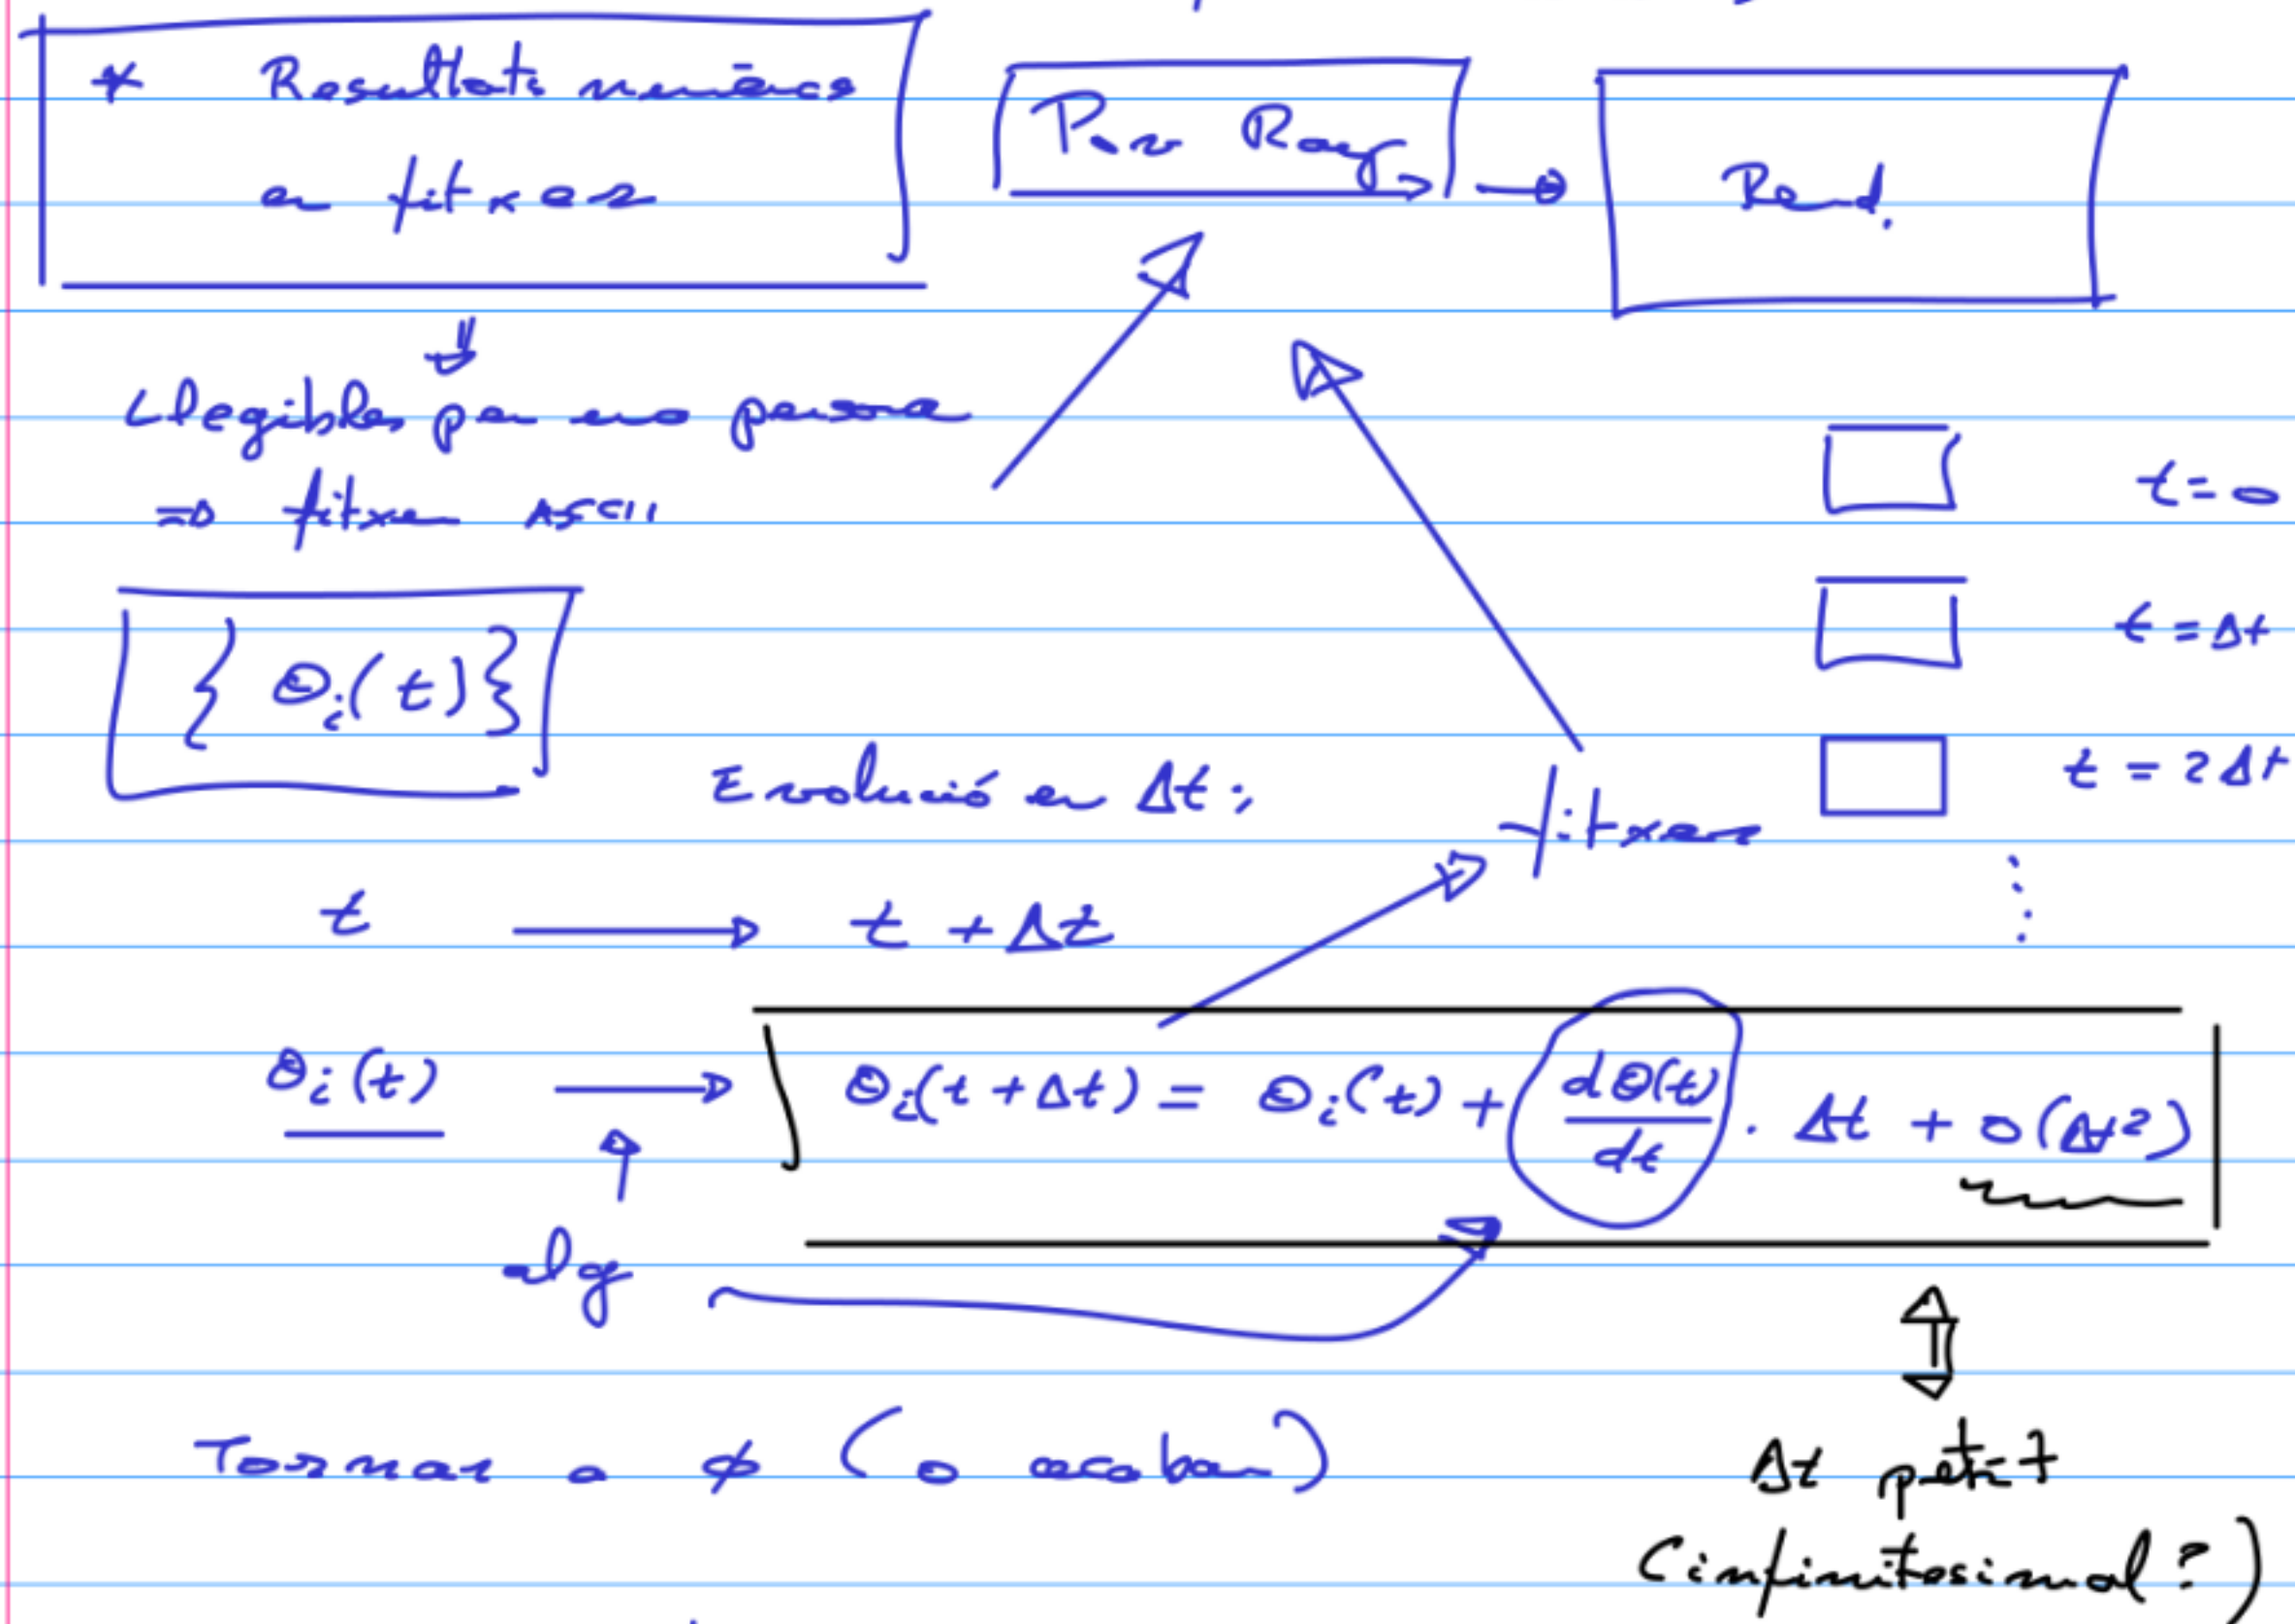 * Resultats numèrics
en fitxer
Pov Ray → Rend.
↓
Llegibles per una persona
⇒ fitxer ASCII
t = 0
t = Δt
{ Θi(t) }
Evolució en Δt:
t = 2Δt
fitxer
⋮
t → t + Δt
Θi(t) → Θi(t + Δt) = Θi(t) + dΘ(t)/dt · Δt + O(Δt²)
alg
Tornar a ϕ (o acabar)
Δt petit
(infinitesimal?)